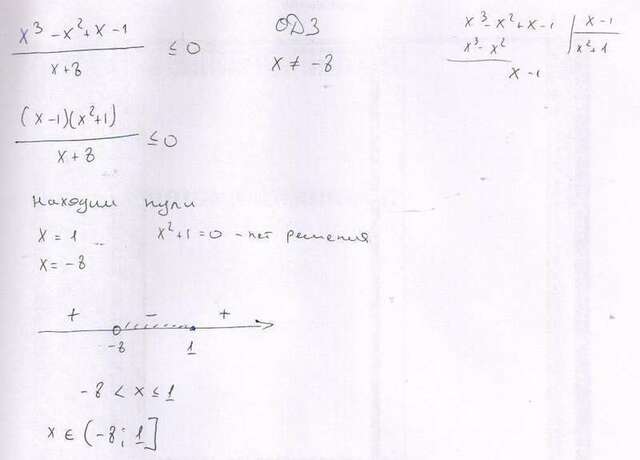 x³ - x² + x - 1 / x + 8 ≤ 0
ОДЗ
x ≠ -8
x³ - x² + x - 1 | x - 1
x³ - x² | x² + 1
x - 1
(x - 1)(x² + 1) / x + 8 ≤ 0
Находим нули
x = 1 x² + 1 = 0 - нет решения
x = -8
+ - +
-8 1
-8 < x ≤ 1
x ∈ (-8; 1]